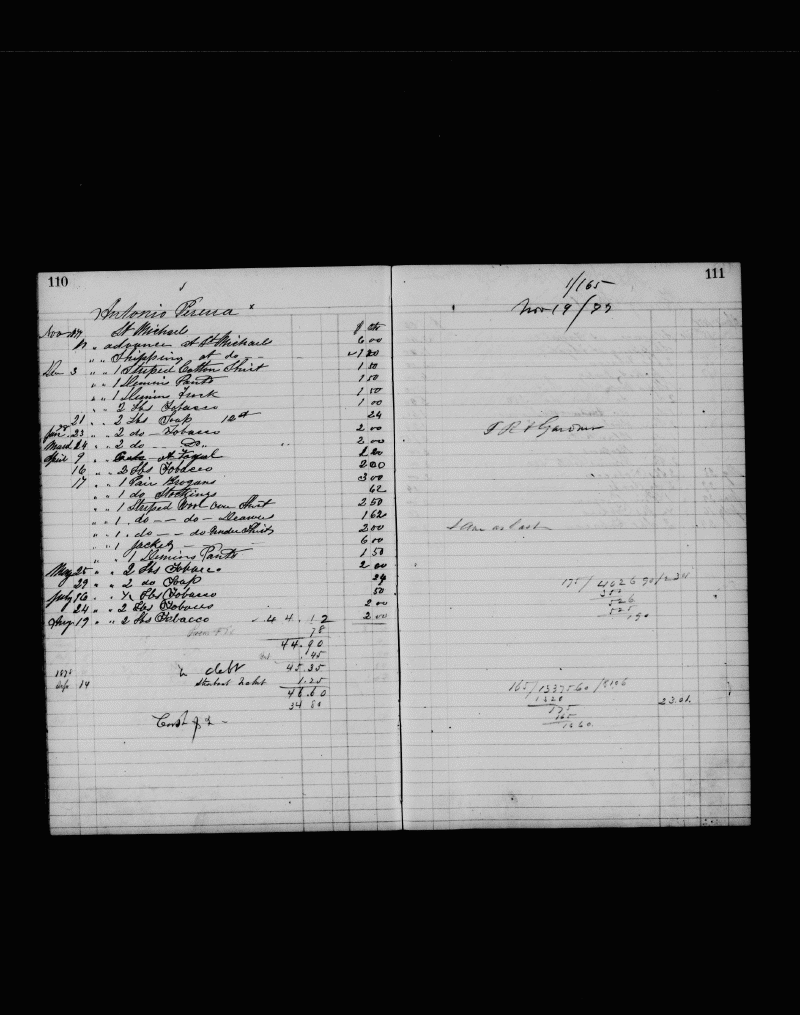 110
Antonio Pereira x
Nov 1877 St Michael $ cts
" " advance at St Michael 6 00
" " Shipping at do - - 1 20
Dec 3 " " 1 Striped Cotton Shirt 1 50
" " 1 Denims Pants 1 50
" " 1 Denims Frock 1 50
" " 2 lbs Tobacco 1 00
21 " " 2 lbs Soap 12 ct 24
78
Jan 23 " " 2 do - Tobacco 2 00
March 24 " " 2 do - Do. 2 00
April 9 " " Cash at Fayal
16 " " 2 lbs Tobacco 2 00
17 " " 1 Pair Brogans 3 00
" " 1 do Stockings 62
" " 1 Striped Wool Over Shirt 2 50
" " 1 . do - - do - Drawers 1 62
" " 1 . do - - do Under Shirts 2 00
" " 1 Jacket - 6 00
" " 1 Denims Pants 1 50
May 25 " " 2 lbs Tobacco 2 00
29 " " 2 do Soap 24
July 16 " " ½ lbs Tobacco 50
24 " " 2 lbs Tobacco 2 00
Aug 19 " " 2 lbs Tobacco 44.12 2 00
78
44.90
.45
debt 45.35
1878
Sep 14 1.25
46.60
34 80
111
1/165
Nov 19/77
T R & Gardner
Same as last
175/4026 90/2 34
350
526
525
190
165/1337560/8106
1320
175
165
1060
23.01